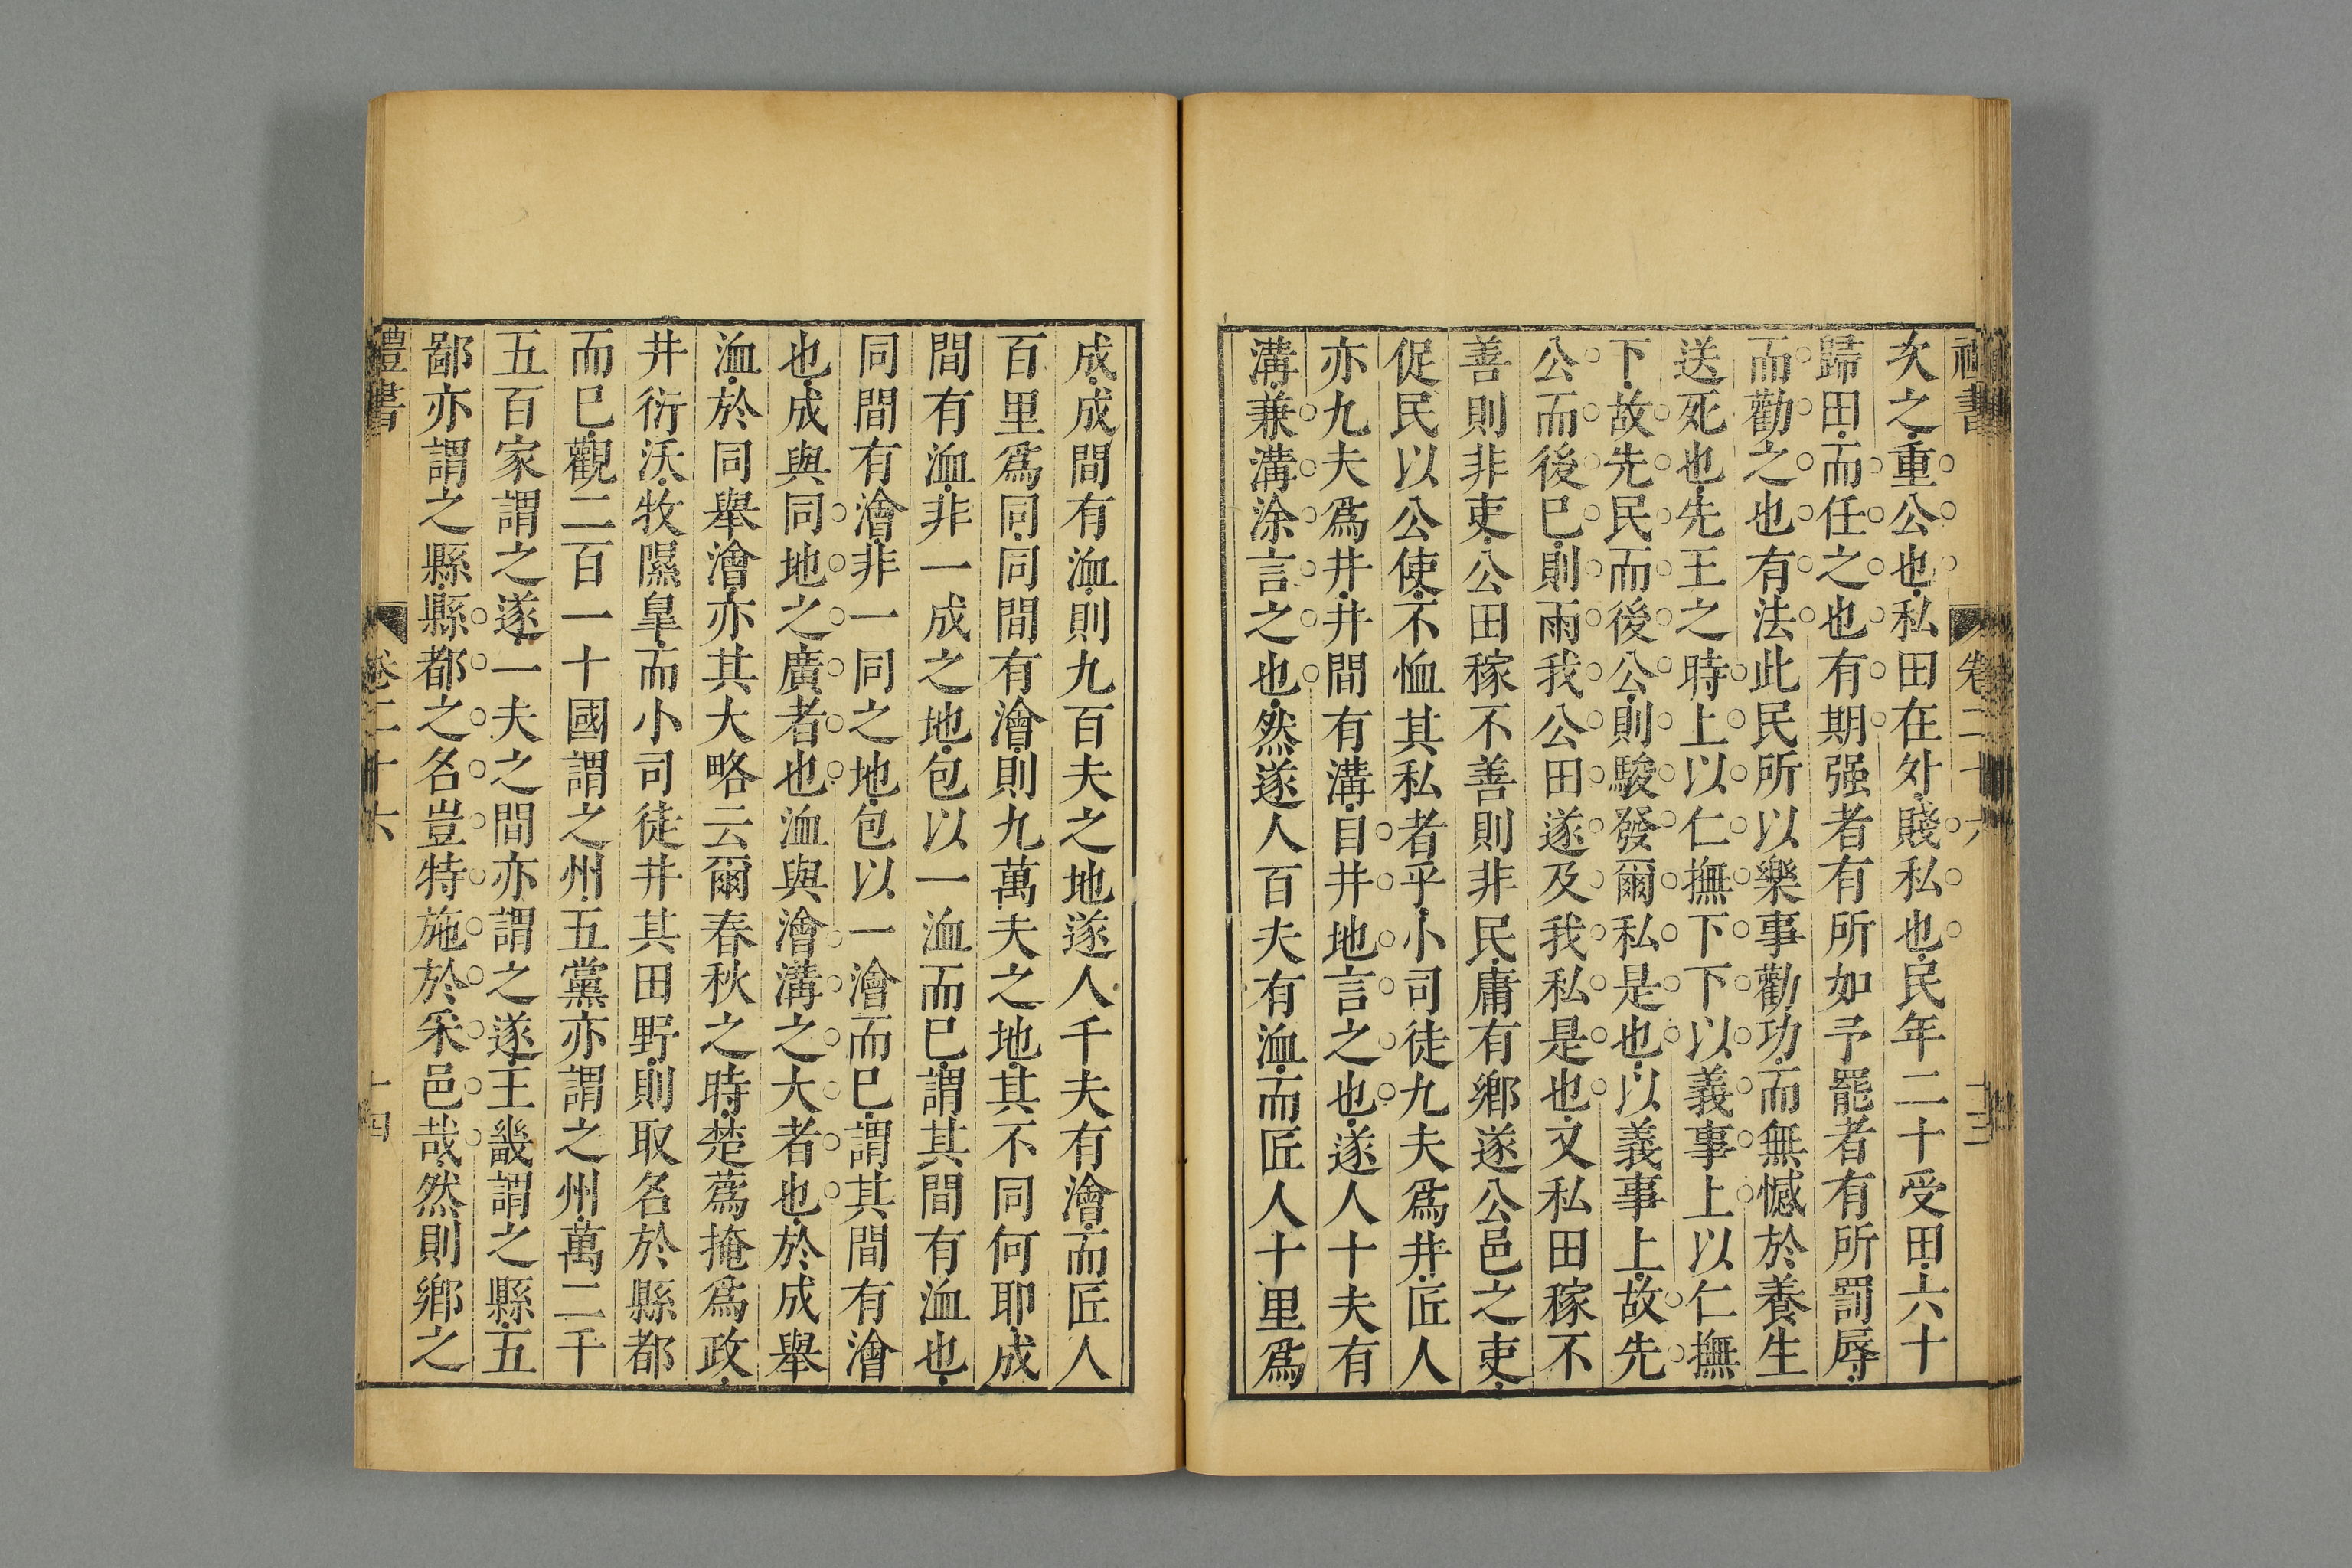 次之重公也私田在外賤私也民年二十受田六十
歸田而任之也有期强者有所加予罷者有所罰辱
而勸之也有法此民所以樂事勸功而無憾於養生
送死也先王之時上以仁撫下下以義事上以仁撫
下故先民而後公則駿發爾私是也以義事上故先
公而後已則雨我公田遂及我私是也又私田稼不
善則非吏公田稼不善則非民庸有鄉遂公邑之吏
促民以公使不恤其私者乎小司徒九夫爲井匠人
亦九夫爲井井間有溝自井地言之也遂人十夫有
溝兼溝涂言之也然遂人百夫有洫而匠人十里爲
成成間有洫則九百夫之地遂人千夫有澮而匠人
百里爲同同間有澮則九萬夫之地其不同何耶成
間有洫非一成之地包以一洫而已謂其間有洫也
同間有澮非一同之地包以一澮而已謂其間有澮
也成與同地之廣者也洫與澮溝之大者也於成舉
洫於同舉澮亦其大略云爾春秋之時楚蔿掩爲政
井衍沃牧隰皐而小司徒井其田野則取名於縣都
而已觀二百一十國謂之州五黨亦謂之州萬二千
五百家謂之遂一夫之間亦謂之遂王畿謂之縣五
鄙亦謂之縣縣都之名豈特施於采邑哉然則鄉之
禮書 卷二十六 十四